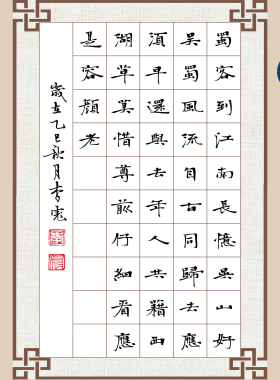 蜀客到江南長憶吳山好
吳蜀風流自古同歸去應
須早還與去年人共藉西
湖草莫惜尊前仔細看應
是容顏老
歲在乙巳秋月李